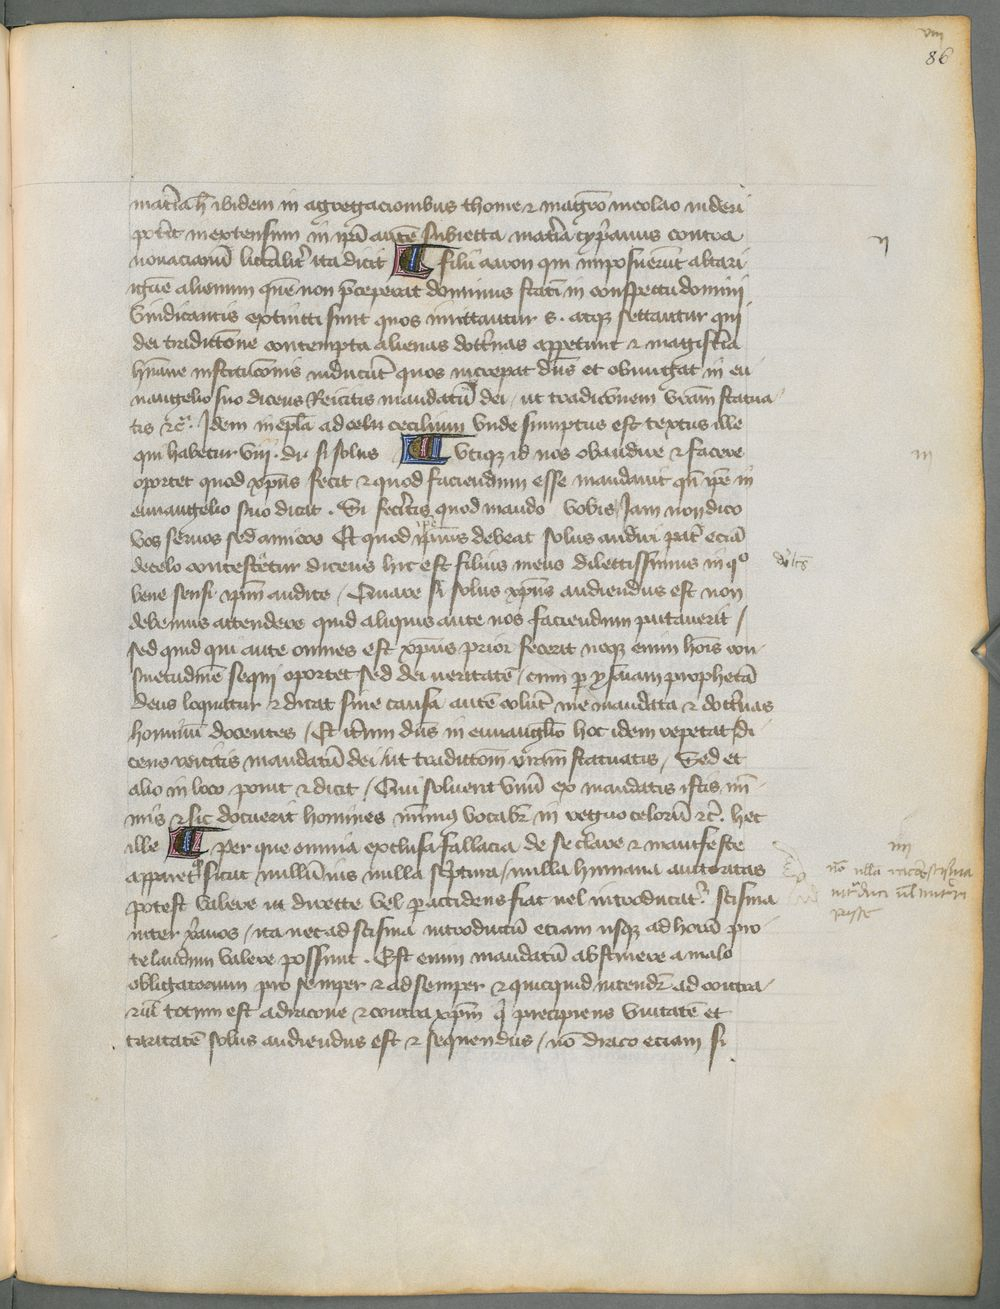 viij
86
mat̃iã h̃ ibidem in agregacionibus thome ⁊ magr̃o nicolao videri
pot̃it inextensum in p̃ri aut̃e subiecta mat̃ia cyp̃anus contra
nouacianũ litt̃alit̾ ita dicit filij aaron qui imposuerũt altari
ignẽ alienum que non p̃ceperat dominus stati in conspectu domini
vindicantis extincti sunt quos imittantur s. atqꝫ sectantur qui
dei tradictõne contempta alienas doct̾nas appetunt ⁊ magist̾ia
hũane institucõnis inducũt quos increpat dñs et obiurgat in eu
uangelio suo dicens Reicitis mandatũ dei ut tradicõnem vr̃am statua
tis ⁊c̃. Idem in ep̃la ad celiũ cecilium vnde sumptus est textus ille
qui habetur viij. di. si solus Vtiqꝫ id nos obaudire ⁊ facere
oportet quod xp̃us fecit ⁊ quod faciendum esse mandauit qñ ip̃e in
euuangelio suo dicat . Si fecitis quod mando vobis Iam non dico
vos seruos sed amicos Et quod xp̃us debeat solus audiri pat̾ eciã
decelo contestetur dicens hic est filius meus dilectissimus in qᵒ
bene sensi ip̃m audite / Quare si solus xp̃us audiendus est non
debemus attendere quid aliquis ante nos faciendum putauerit /
sed quid qui ante omnes est xp̃us prior fecerit neqꝫ enim hoĩs con
suetudinẽ sequi oportet sed dei ueritatẽ / cum p ysaiam prophetã
deus loquatur ⁊ dicat sine causa autẽ colũt me mandata ⁊ doct̾nas
hominũ docentes / Et it̾um dñs in euuangl̃io hoc idem repetat di
cens reicitis mandatũ dei ut tradictõm vr̃am statuatis / Sed et
alio in loco ponit ⁊ dicit / Qui soluerit vnũ ex mandatis istis mĩ
mis ⁊ sic docuerit homines minimꝰ vocabit̾ in regno celorũ ⁊c̃. hec
ille per que omnia exclusa fallacia de se clare ⁊ manifeste
apparet qᵈ sicut nullũ ius nulla sc̾ptura / nulla humana auctoritas
potest valere ut directe vel p accidens fiat uel introducat̾. scisma
inter xp̃ianos / ita nec ad scisma introductũ eciam usqꝫ ad horã pro
telandum valere possunt . Est enim mandatũ abstinere a malo
obligatorium pro semper ⁊ ad semper ⁊ quicquid intendit̾ ad contra
riũ totum est a dracone ⁊ contra xp̃m qⁱ precipiens vnitatẽ et
caritatẽ solus audiendus est ⁊ sequendus / nõ draco eciam si
ij
iij
iiij